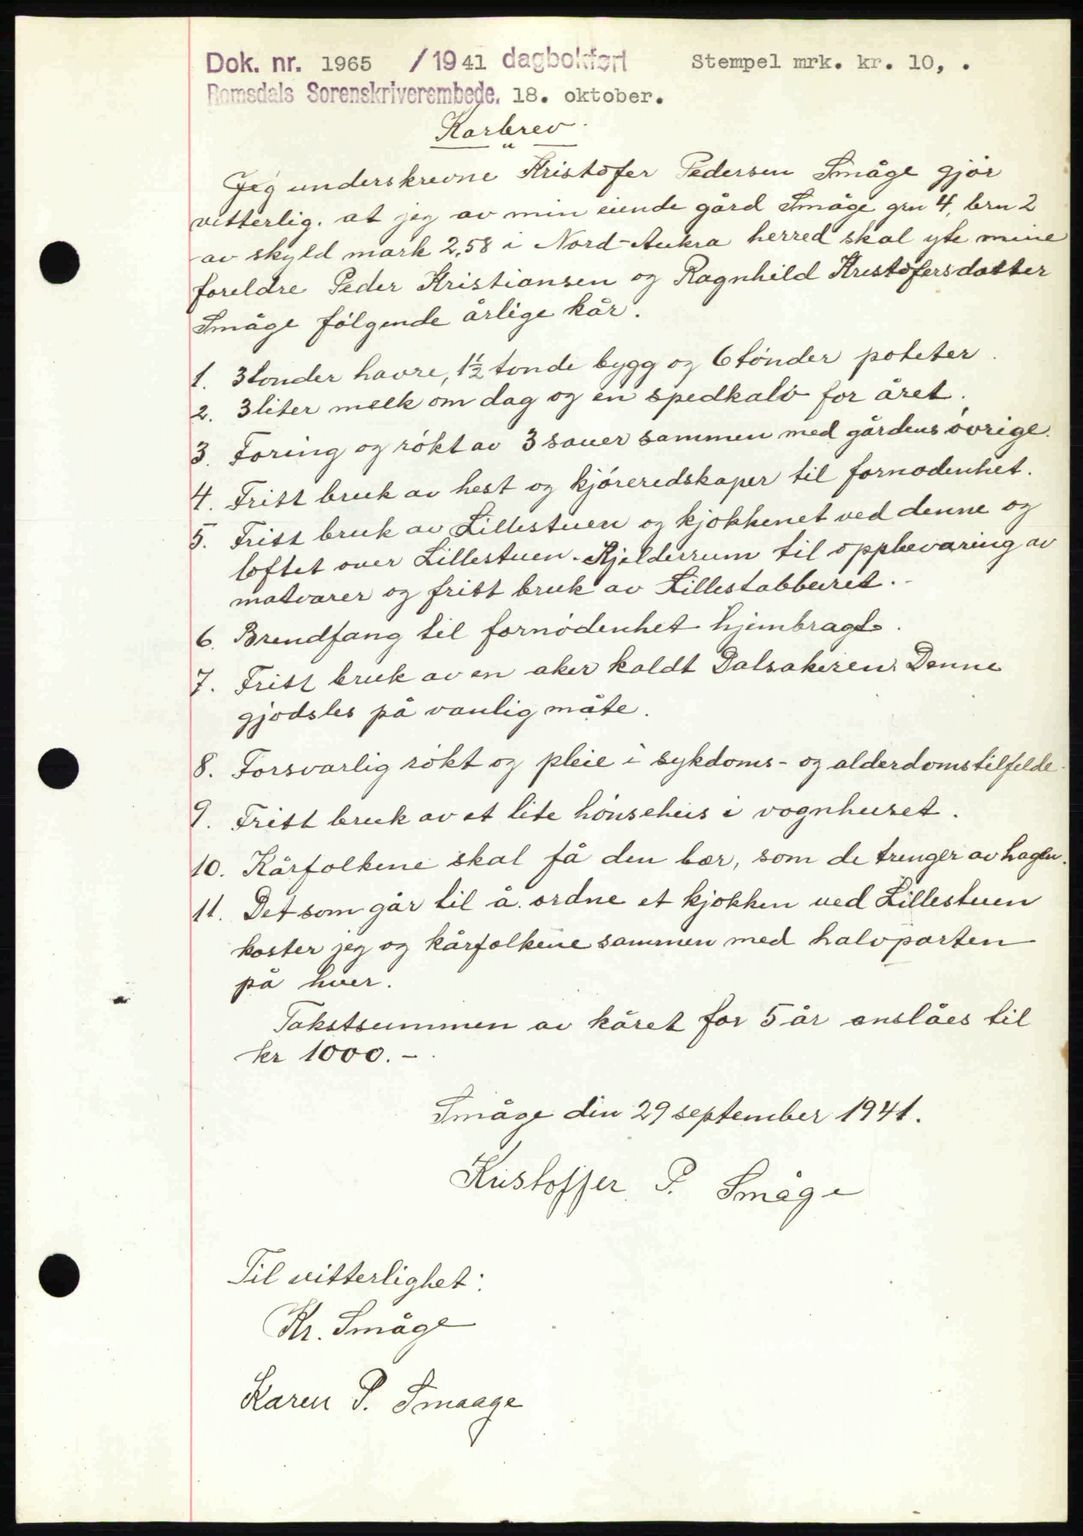 Dok. nr. 1965 /1941 dagbokført Stempel mrk. kr. 10, .
Romsdals Sorenskriverembede. 18. oktober.
Kårbrev
Jeg underskrevne Kristofer Pedersen Småge gjör
vitterlig. at jeg av min eiende gård Småge grn 4, brn 2
av skyld mark 2,58 i Nord-Aukra herred skal yte mine
foreldre Peder Kristiansen og Ragnhild Kristofersdatter
Småge fölgende årlige kår.
1. 3 tonder havre, 1½ tonde bygg og 6 tönder poteter.
2. 3 liter melk om dag og en spedkalv for året.
3. Foring og rökt av 3 sauer sammen med gårdens övrige.
4. Fritt bruk av hest og kjöreredskaper til fornodenhet.
5. Fritt bruk av Lillestuen og kjökkenet ved denne og
loftet over Lillestuen. Kjelderrum til oppbevaring av
matvarer og fritt bruk av Lillestabburet.-
6. Brendfang til fornödenhet hjembragt.
7. Fritt bruk av en aker kaldt Dalsakeren. Denne
gjodsles på vanlig måte.
8. Forsvarlig rökt og pleie i sykdoms- og alderdomstilfelde.
9. Fritt bruk av et lite hönsehus i vognhuset.
10. Kårfolkene skal få den bær, som de trenger av hagen.
11. Det som går til å ordne et kjokken ved Lillestuen
koster jeg og kårfolkene sammen med halvparten
på hver.
Takstsummen av kåret for 5 år anslåes til
kr 1000.-
Småge den 29 september 1941.
Kristoffer P. Småge
Til vitterlighet:
Kr. Småge
Karen P. Smaage